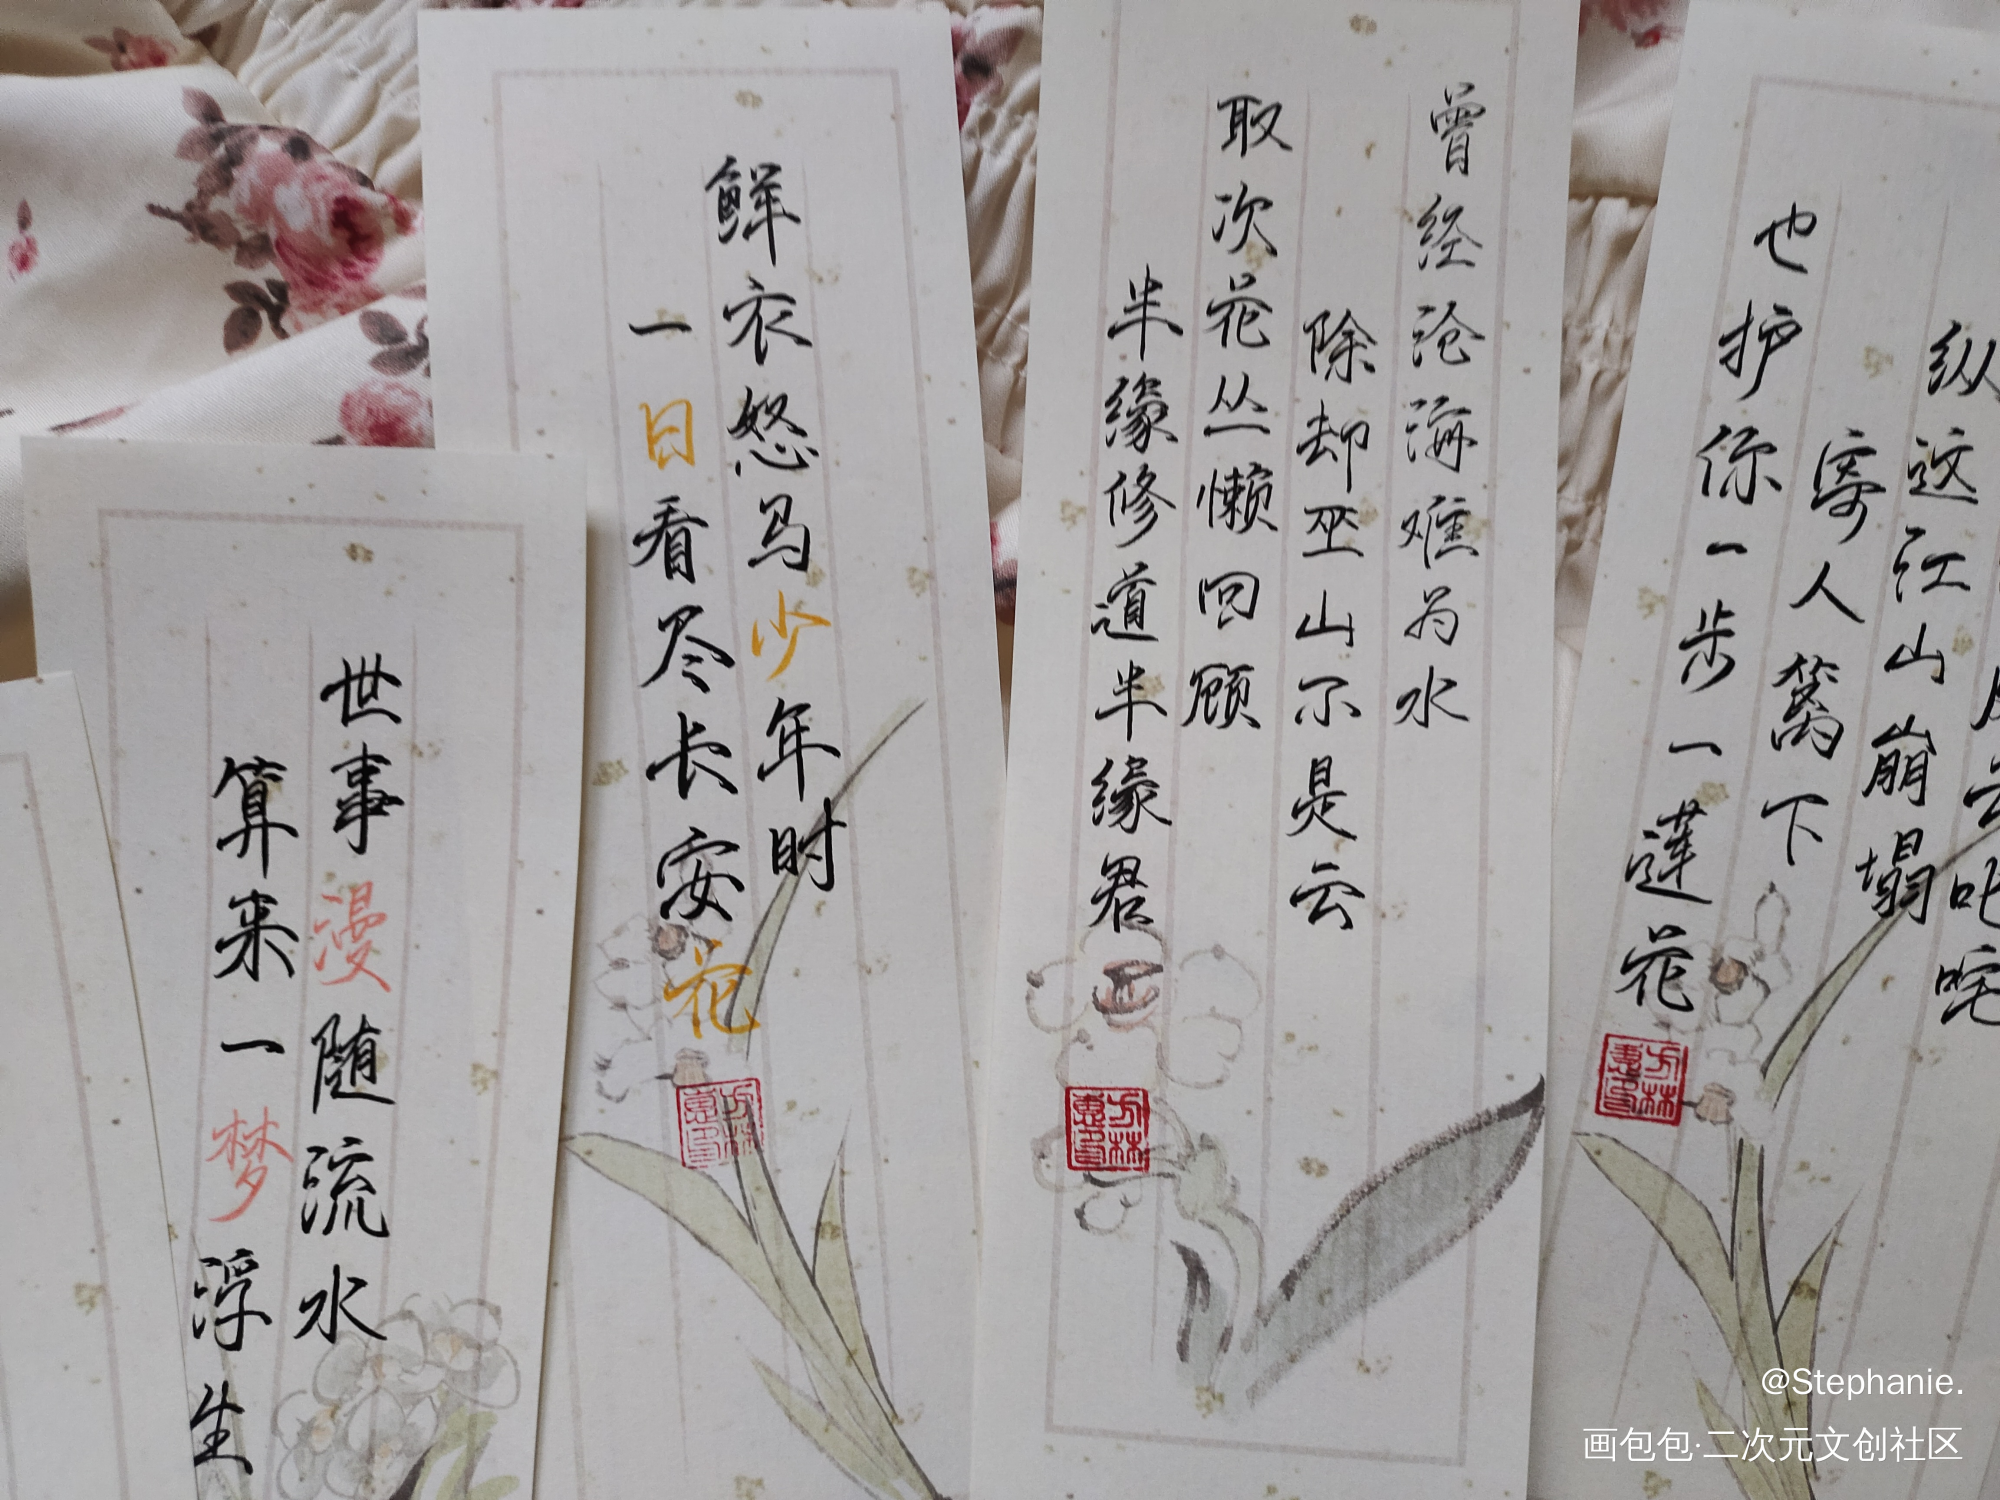 叱咤
纵这江山崩塌
寄人篱下
也护你一步一蓮花
曾经沧海难为水
除却巫山不是云
取次花丛懒回顾
半缘修道半缘君
鲜衣怒马少年时
一日看尽长安花
世事漫随流水
算来一梦浮生
@Stephanie.
画包包·二次元文创社区